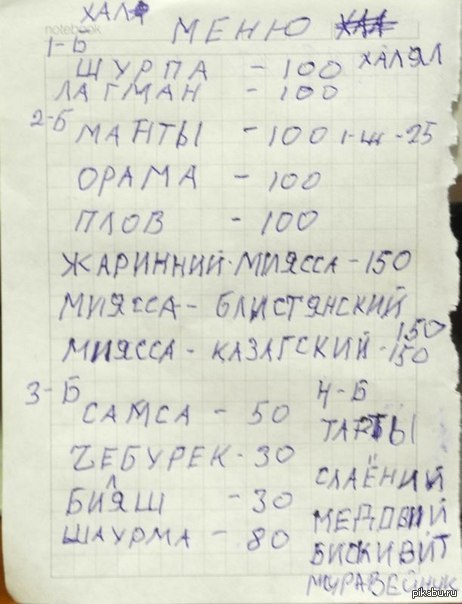 ХАЛ
notebook
МЕНЮ
ХАЛЯЛ
1-Б
ШУРПА - 100
ЛАГМАН - 100
2-Б
МАНТЫ - 100 1-Ш-25
ОРАМА - 100
ПЛОВ - 100
ЖАРИННИЙ-МИЯССА-150
МИЯССА- БЛИСТЯНСКИЙ
150
МИЯССА-КАЗАГСКИЙ-150
3-Б
САМСА - 50
ЧЕБУРЕК-30
БИЛЯШ - 30
ШАУРМА - 80
4-Б
ТАРТЫ
СЛАЁНИЙ
МЕДОВИЙ
БИСКИВИТ
МУРАВЕЙНИК
pikabu.ru